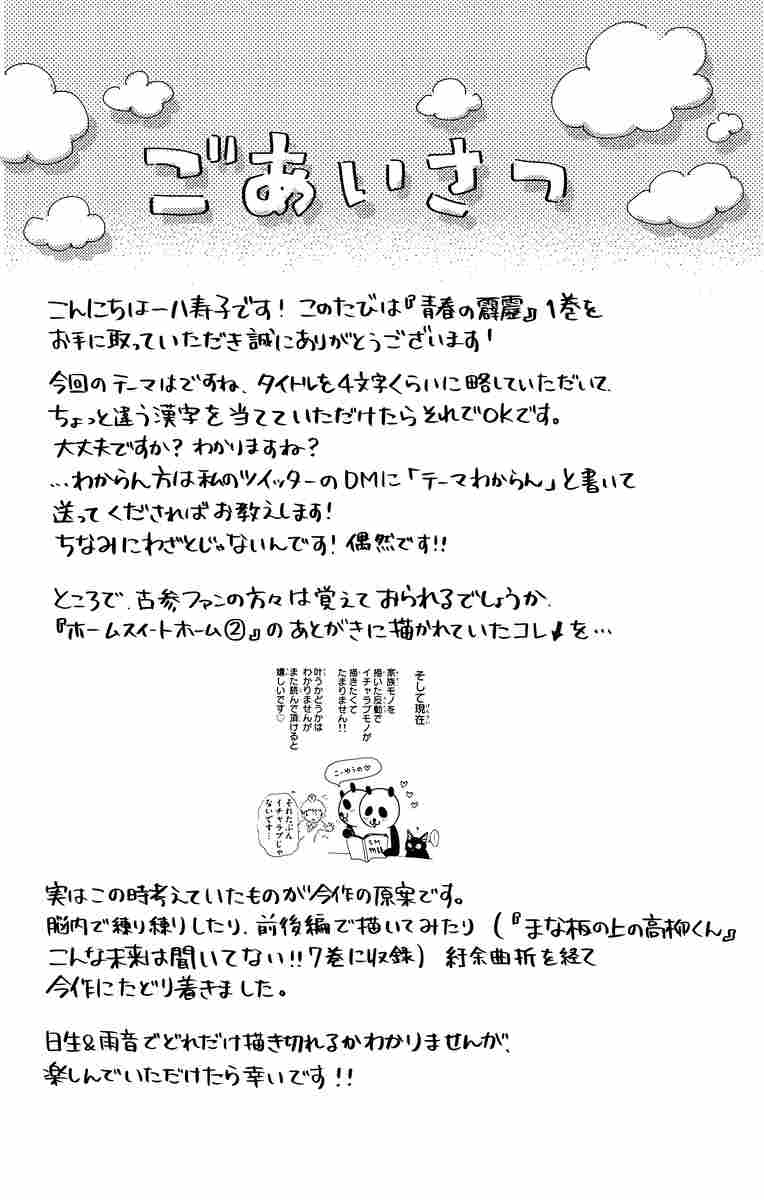 ごあいさつ
こんにちは一八寿子です! このたびは『青春の霹靂』1巻を
お手に取っていただき誠にありがとうございます!
今回のテーマはですね、タイトルを4文字くらいに略していただいて
ちょっと違う漢字を当てていただけたらそれでOKです。
大丈夫ですか? わかりますね?
…わからん方は私のツイッターのDMに「テーマわからん」と書いて
送ってくださればお教えします!
ちなみにわざとじゃないんです! 偶然です!!
ところで、古参ファンの方々は覚えておられるでしょうか、
『ホームスイートホーム②』のあとがきに描かれていたコレ↓を…
そして現在
家族モノを
描いた反動で
イチャラブモノが
描きたくて
たまりません!!
叶うかどうかは
わかりませんが
また読んで頂けると
嬉しいです♡
こーゆうの♡
SM
それたぶん
イチャラブじゃ
ないです…
実はこの時考えていたものが今作の原案です。
脳内で練り練りしたり、前後編で描いてみたり(『まな板の上の高柳くん』
こんな未来は聞いてない!!7巻に収録) 紆余曲折を経て
今作にたどり着きました。
日生&雨音でどれだけ描き切れるかわかりませんが、
楽しんでいただけたら幸いです!!